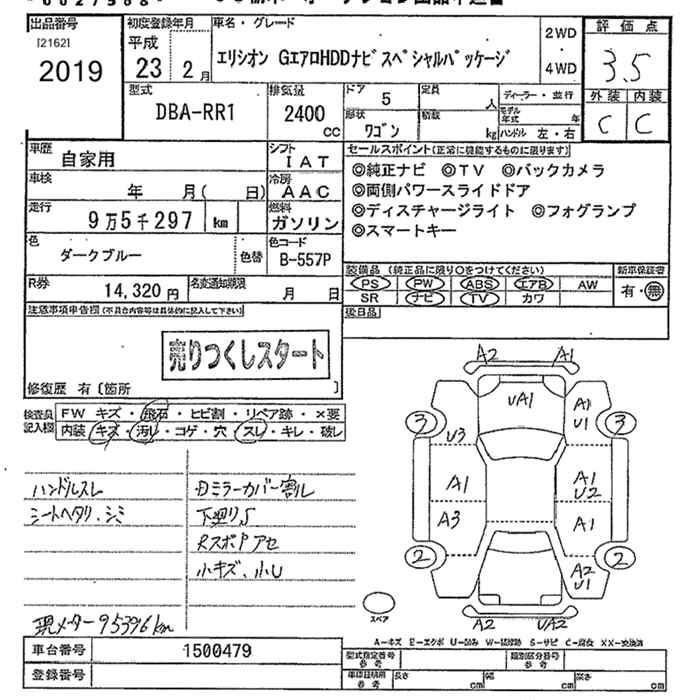 出品番号
[2162]
2019
初度登録年月
平成
23 2月
車名・グレード
エリシオン GエアロHDDナビスペシャルパッケージ
2WD
・
4WD
評価点
3.5
外装 内装
C C
型式
DBA-RR1
排気量
2400
cc
ドア 5
形状
ワゴン
定員 人
積載 kg
ディーラー・並行
モデル年式 年
ハンドル 左・右
車歴
自家用
シフト
IAT
車検
年 月( 日)
冷房
AAC
走行
9万5千297 km
燃料
ガソリン
色
ダークブルー
色替
色コード
B-557P
R券
14,320円
名変通知期限
月 日
セールスポイント(正常に機能するものに限ります)
◎純正ナビ ◎TV ◎バックカメラ
◎両側パワースライドドア
◎ディスチャージライト ◎フォグランプ
◎スマートキー
装備品 (純正品に限り○をつけてください)
PS PW ABS エアB AW
SR ナビ TV カワ
新車保証書
有・無
後日品
注意事項申告欄(不具合内容等は具体的に記入して下さい)
売りつくしスタート
修復歴 有〔箇所 〕
検査員記入欄
FW キズ・飛石・ヒビ割・リペア跡・×要
内装 キズ・汚レ・コゲ・穴・スレ・キレ・破レ
ハンドルスレ
シートヘタリ、シミ
ミラーカバー割レ
小キズ、小U
現メーター95396km
A2 A1
UA1
3 U3 A1 U1 3
A1 A1 U2
A3 A1
2 A2 U1 2
A2 UA2
スペア
A-キズ E-エクボ U-凹み W-補修跡 S-サビ C-腐食 XX-交換済
車台番号 1500479
登録番号
型式指定番号
参考
類別区分番号
参考
車印日積用
参考
長さ cm 幅 cm 高さ cm